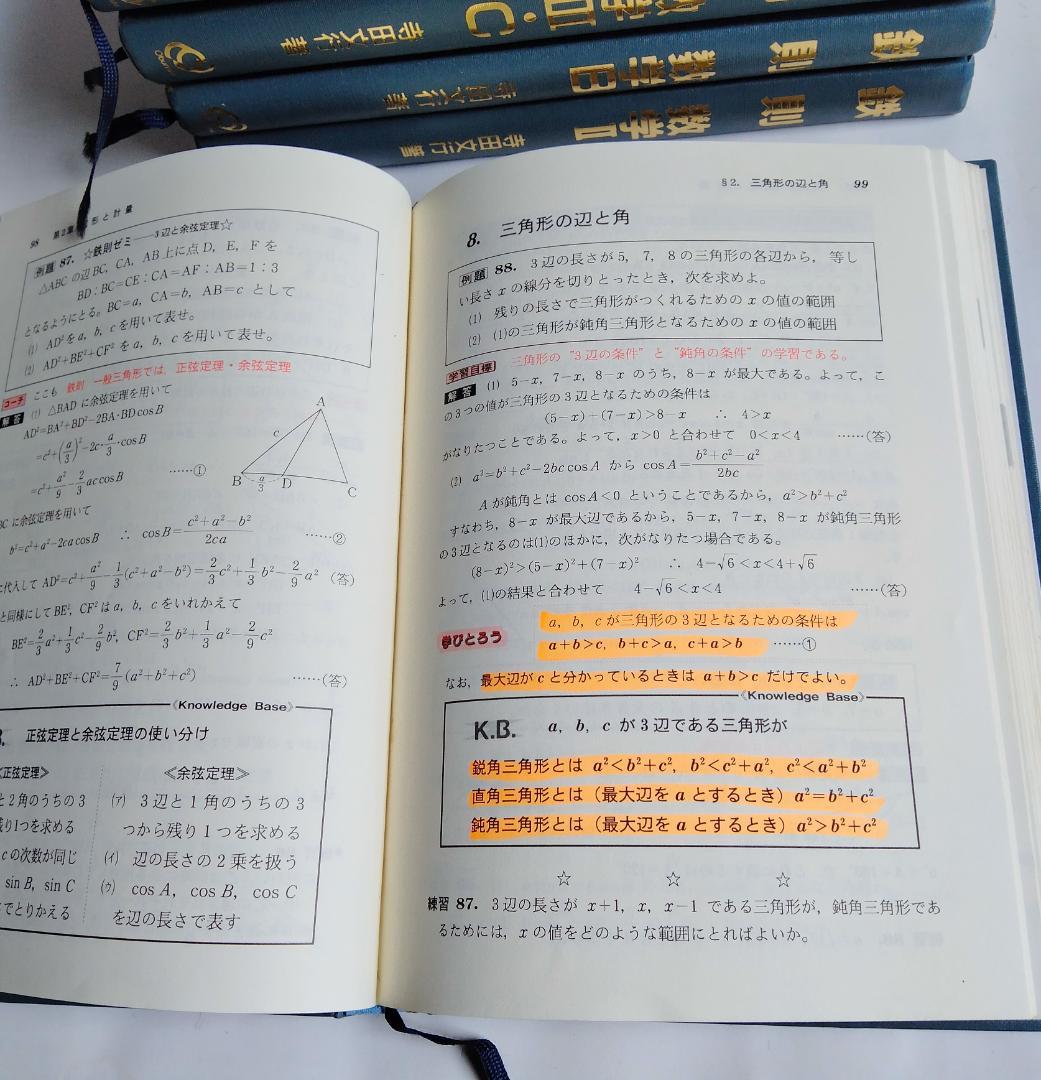 数学Ⅲ・C
寺田文行著
鉄則 数学B
寺田文行著
鉄則 数学Ⅱ
寺田文行著
98 第2章 形と計量
例題 87. ☆鉄則ゼミ――3辺と余弦定理☆
△ABC の辺 BC, CA, AB 上に点 D, E, F を
BD:BC=CE:CA=AF:AB=1:3
となるようにとる。BC=a, CA=b, AB=c として
(1) AD²を a, b, c を用いて表せ。
(2) AD²+BE²+CF² を a, b, c を用いて表せ。
コーチ ここも 鉄則 一般三角形では, 正弦定理・余弦定理
解答 (1) △BAD に余弦定理を用いて
AD²=BA²+BD²−2BA・BD cos B
=c²+(a/3)²−2c・a/3・cos B
=c²+a²/9−2/3 ac cos B ……①
A
c
B a/3 D
C
BC に余弦定理を用いて
b²=c²+a²−2ca cos B ∴ cos B=(c²+a²−b²)/2ca ……②
に代入して AD²=c²+a²/9−1/3(c²+a²−b²)=2/3c²+1/3b²−2/9a² (答)
と同様にして BE², CF² は a, b, c をいれかえて
BE²=2/3a²+1/3c²−2/9b², CF²=2/3b²+1/3a²−2/9c²
∴ AD²+BE²+CF²=7/9(a²+b²+c²) ……(答)
《Knowledge Base》
正弦定理と余弦定理の使い分け
≪正弦定理≫
と2角のうちの3
残り1つを求める
cの次数が同じ
sin B, sin C
でとりかえる
≪余弦定理≫
(ア) 3辺と1角のうちの3
つから残り1つを求める
(イ) 辺の長さの2乗を扱う
(ウ) cos A, cos B, cos C
を辺の長さで表す
§2. 三角形の辺と角 99
8. 三角形の辺と角
例題 88. 3辺の長さが 5, 7, 8 の三角形の各辺から, 等し
い長さ x の線分を切りとったとき, 次を求めよ。
(1) 残りの長さで三角形がつくれるための x の値の範囲
(2) (1)の三角形が鈍角三角形となるための x の値の範囲
学習目標 三角形の “3辺の条件” と “鈍角の条件” の学習である。
解答 (1) 5−x, 7−x, 8−x のうち, 8−x が最大である。よって, こ
の3つの値が三角形の3辺となるための条件は
(5−x)+(7−x)>8−x ∴ 4>x
がなりたつことである。よって, x>0 と合わせて 0<x<4 ……(答)
(2) a²=b²+c²−2bc cos A から cos A=(b²+c²−a²)/2bc
A が鈍角とは cos A<0 ということであるから, a²>b²+c²
すなわち, 8−x が最大辺であるから, 5−x, 7−x, 8−x が鈍角三角形
の3辺となるのは(1)のほかに, 次がなりたつ場合である。
(8−x)²>(5−x)²+(7−x)² ∴ 4−√6<x<4+√6
よって, (1)の結果と合わせて 4−√6<x<4 ……(答)
学びとろう a, b, c が三角形の3辺となるための条件は
a+b>c, b+c>a, c+a>b ……①
なお, 最大辺が c と分かっているときは a+b>c だけでよい。
《Knowledge Base》
K.B. a, b, c が3辺である三角形が
鋭角三角形とは a²<b²+c², b²<c²+a², c²<a²+b²
直角三角形とは (最大辺を a とするとき) a²=b²+c²
鈍角三角形とは (最大辺を a とするとき) a²>b²+c²
☆ ☆ ☆
練習 87. 3辺の長さが x+1, x, x−1 である三角形が, 鈍角三角形であ
るためには, x の値をどのような範囲にとればよいか。